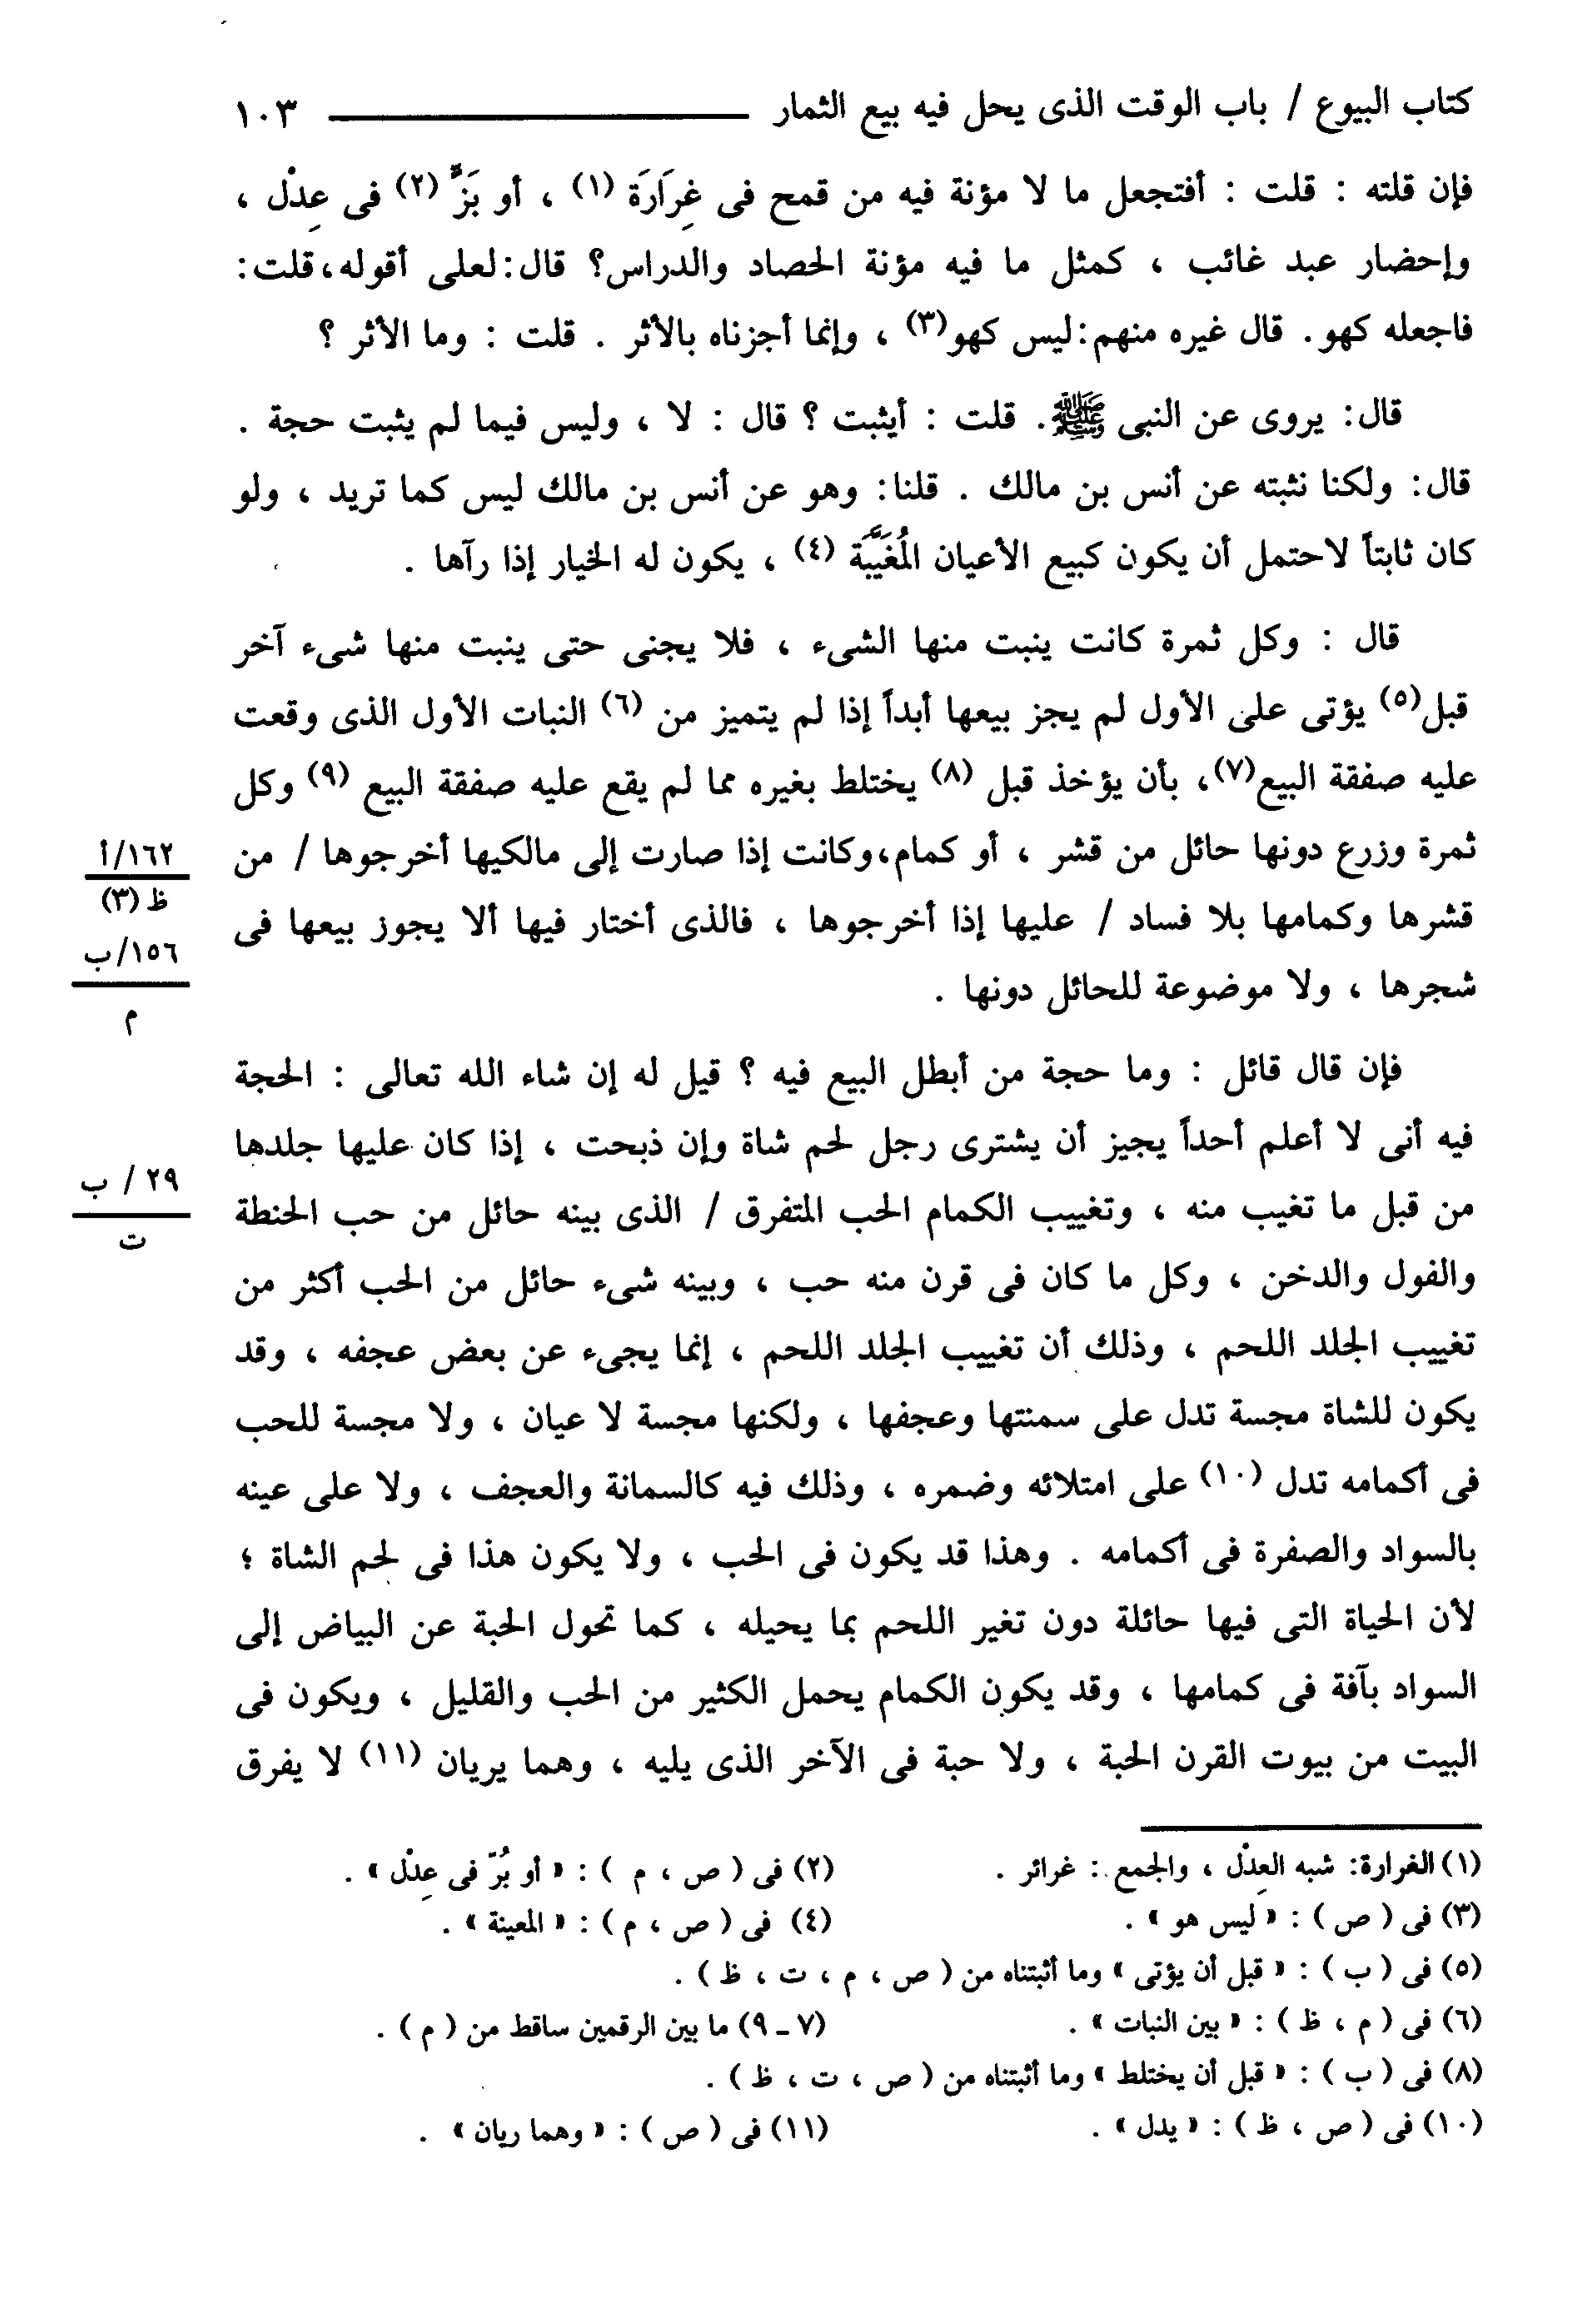 كتاب البيوع / باب الوقت الذى يحل فيه بيع الثمار ١٠٣
فإن قلته : قلت : أفتجعل ما لا مؤنة فيه من قمح فى غِرَارَة (١) ، أو بَزٍّ (٢) فى عِدْل ،
وإحضار عبد غائب ، كمثل ما فيه مؤنة الحصاد والدراس؟ قال:لعلى أقوله،قلت:
فاجعله كهو. قال غيره منهم:ليس كهو(٣) ، وإنما أجزناه بالأثر . قلت : وما الأثر ؟
قال: يروى عن النبى ﷺ. قلت : أيثبت ؟ قال : لا ، وليس فيما لم يثبت حجة .
قال: ولكنا نثبته عن أنس بن مالك . قلنا: وهو عن أنس بن مالك ليس كما تريد ، ولو
كان ثابتاً لاحتمل أن يكون كبيع الأعيان المُغَيَّبَة (٤) ، يكون له الخيار إذا رآها .
قال : وكل ثمرة كانت ينبت منها الشىء ، فلا يجنى حتى ينبت منها شىء آخر
قبل(٥) يؤتى على الأول لم يجز بيعها أبداً إذا لم يتميز من (٦) النبات الأول الذى وقعت
عليه صفقة البيع(٧)، بأن يؤخذ قبل (٨) يختلط بغيره مما لم يقع عليه صفقة البيع (٩) وكل
ثمرة وزرع دونها حائل من قشر ، أو كمام،وكانت إذا صارت إلى مالكيها أخرجوها / من
١٦٢/أ
ظ (٣)
قشرها وكمامها بلا فساد / عليها إذا أخرجوها ، فالذى أختار فيها ألا يجوز بيعها فى
١٥٦/ب
م
شجرها ، ولا موضوعة للحائل دونها .
فإن قال قائل : وما حجة من أبطل البيع فيه ؟ قيل له إن شاء الله تعالى : الحجة
فيه أنى لا أعلم أحداً يجيز أن يشترى رجل لحم شاة وإن ذبحت ، إذا كان عليها جلدها
من قبل ما تغيب منه ، وتغييب الكمام الحب المتفرق / الذى بينه حائل من حب الحنطة
٢٩ / ب
ت
والفول والدخن ، وكل ما كان فى قرن منه حب ، وبينه شىء حائل من الحب أكثر من
تغييب الجلد اللحم ، وذلك أن تغييب الجلد اللحم ، إنما يجىء عن بعض عجفه ، وقد
يكون للشاة مجسة تدل على سمنتها وعجفها ، ولكنها مجسة لا عيان ، ولا مجسة للحب
فى أكمامه تدل (١٠) على امتلائه وضمره ، وذلك فيه كالسمانة والعجف ، ولا على عينه
بالسواد والصفرة فى أكمامه . وهذا قد يكون فى الحب ، ولا يكون هذا فى لحم الشاة ؛
لأن الحياة التى فيها حائلة دون تغير اللحم بما يحيله ، كما تحول الحبة عن البياض إلى
السواد بآفة فى كمامها ، وقد يكون الكمام يحمل الكثير من الحب والقليل ، ويكون فى
البيت من بيوت القرن الحبة ، ولا حبة فى الآخر الذى يليه ، وهما يريان (١١) لا يفرق
(١) الغرارة: شبه العِدْل ، والجمع : غرائر . (٢) فى ( ص ، م ) : « أو بُرّ فى عِدْل » .
(٣) فى ( ص ) : « ليس هو » . (٤) فى ( ص ، م ) : « المعينة » .
(٥) فى ( ب ) : « قبل أن يؤتى » وما أثبتناه من ( ص ، م ، ت ، ظ ) .
(٦) فى ( م ، ظ ) : « بين النبات » . (٧ ـ ٩) ما بين الرقمين ساقط من ( م ) .
(٨) فى ( ب ) : « قبل أن يختلط » وما أثبتناه من ( ص ، ت ، ظ ) .
(١٠) فى ( ص ، ظ ) : « يدل » . (١١) فى ( ص ) : « وهما ريان » .